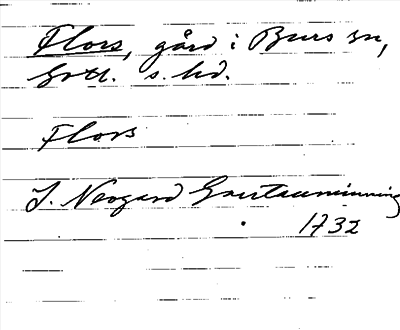 Flors, gård i Burs sn,
Gotl. s. hd.
Flors
J. Neogard Gautauminning
1732